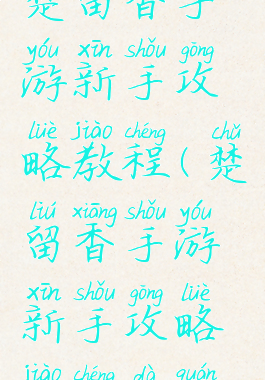 楚留香手
yóu xīn shǒu gōng
游新手攻
lüè jiào chéng chǔ
略教程(楚
liú xiāng shǒu yóu
留香手游
xīn shǒu gōng lüè
新手攻略
jiào chéng dà quán